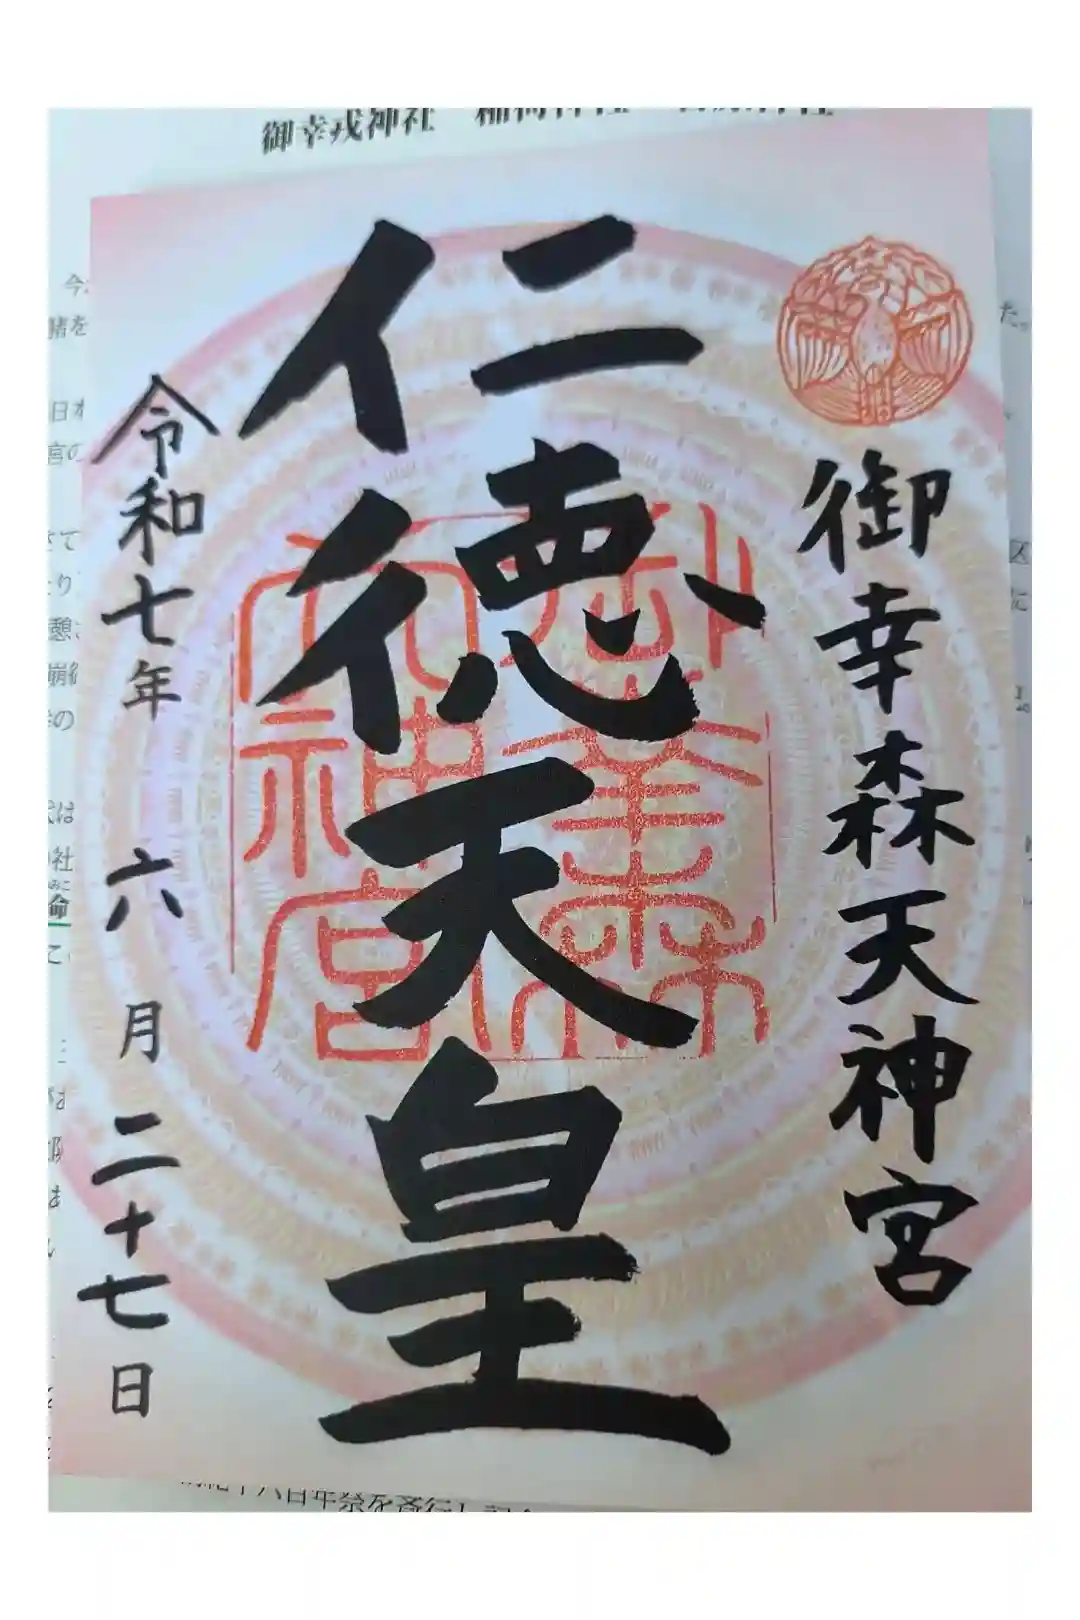 御幸戎神社
御幸森天神宮
仁徳天皇
御幸森
天神宮
令和七年 六月二十七日